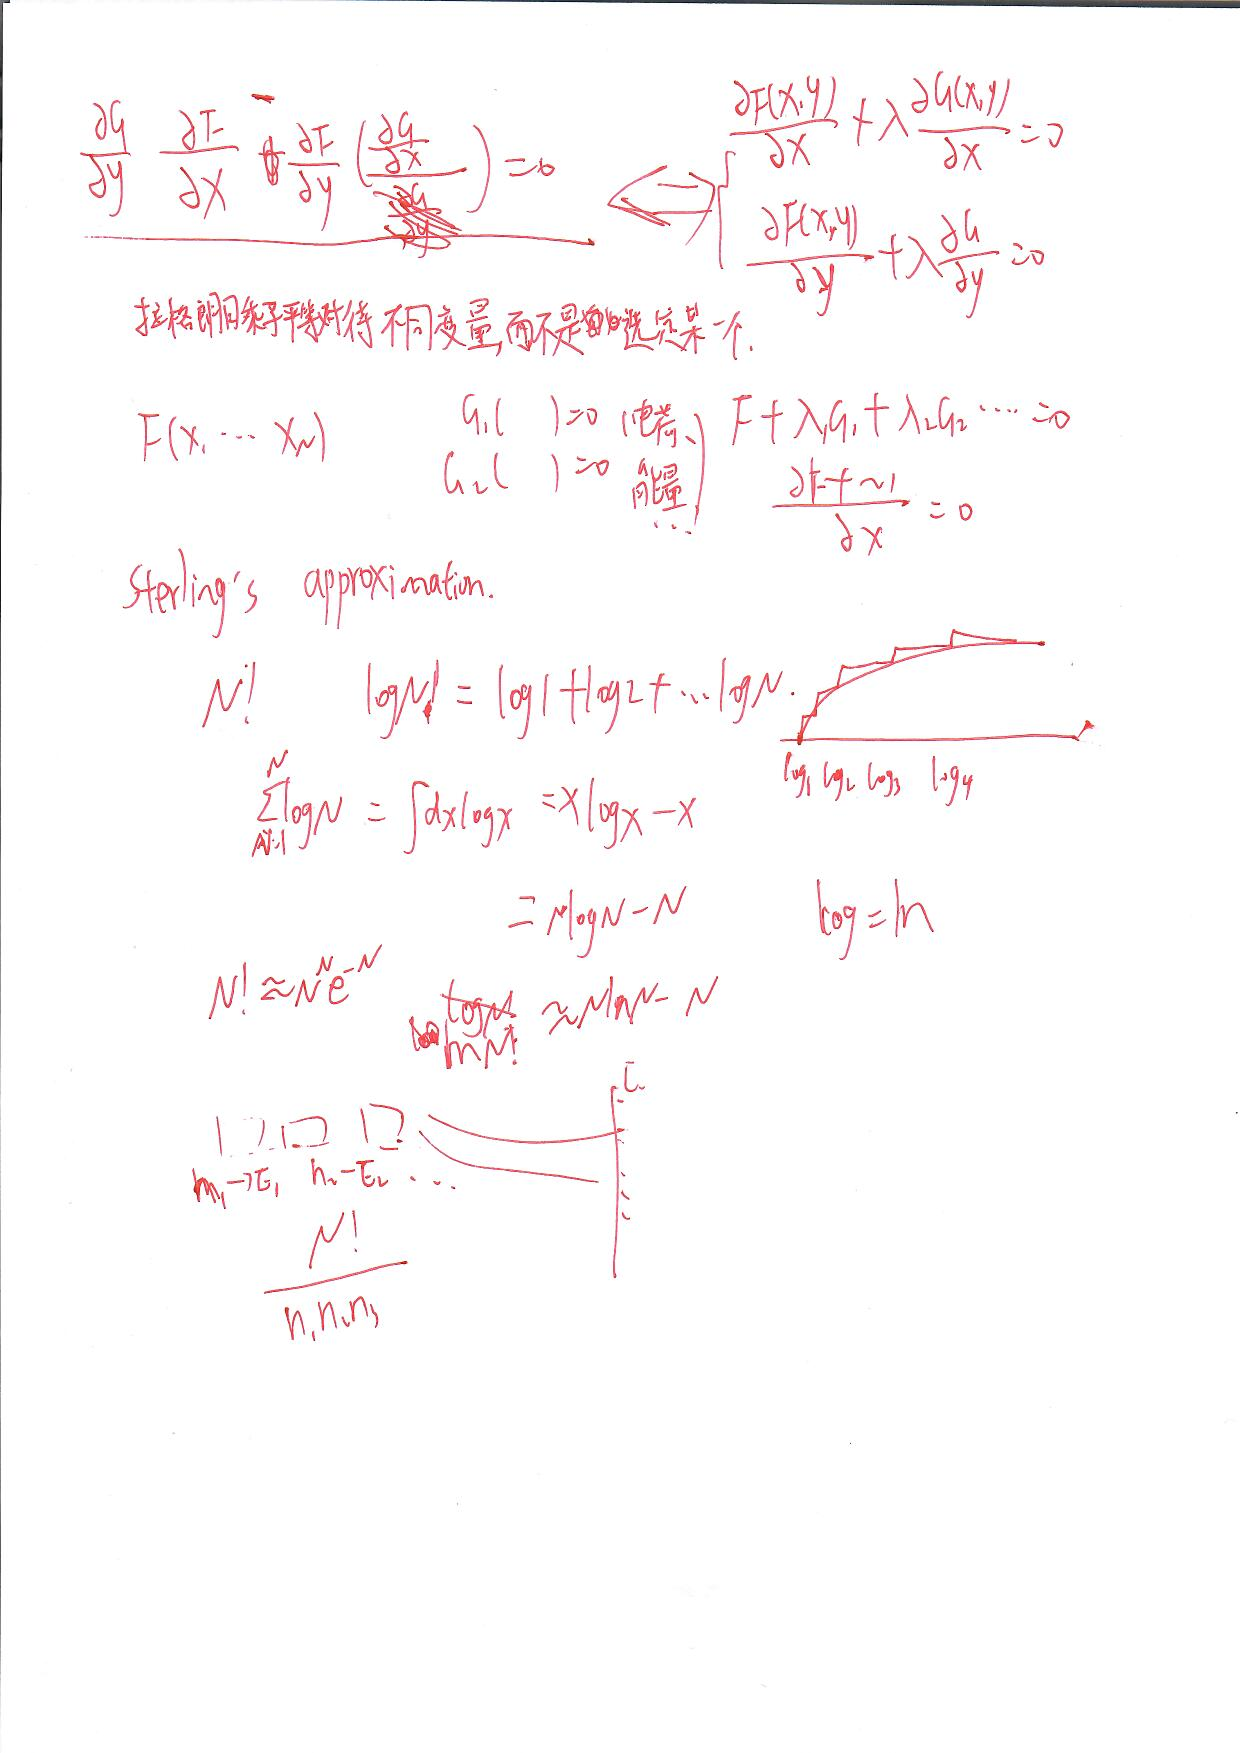 ∂G/∂y ∂F/∂x - ∂F/∂y (∂G/∂x) = 0
∂F(x,y)/∂x + λ ∂G(x,y)/∂x = 0
∂F(x,y)/∂y + λ ∂G/∂y = 0
拉格朗日乘子平等对待不同变量,而不是选定某一个.
F(x₁ … x_N) G₁( )=0 (电荷、 F + λ₁G₁ + λ₂G₂ …. = 0
G₂( )=0 能量 …)
∂F+~1/∂x = 0
Sterling's approximation.
N! logN! = log1+log2+…logN.
log1 log2 log3 log4
∑ᴺ_N=1 logN = ∫dxlogx = xlogx-x
= NlogN-N log=ln
N! ≈ Nᴺe⁻ᴺ lnN! ≈ NlnN-N
E
n₁→E₁ n₂-E₂ ….
N!/n₁n₂n₃